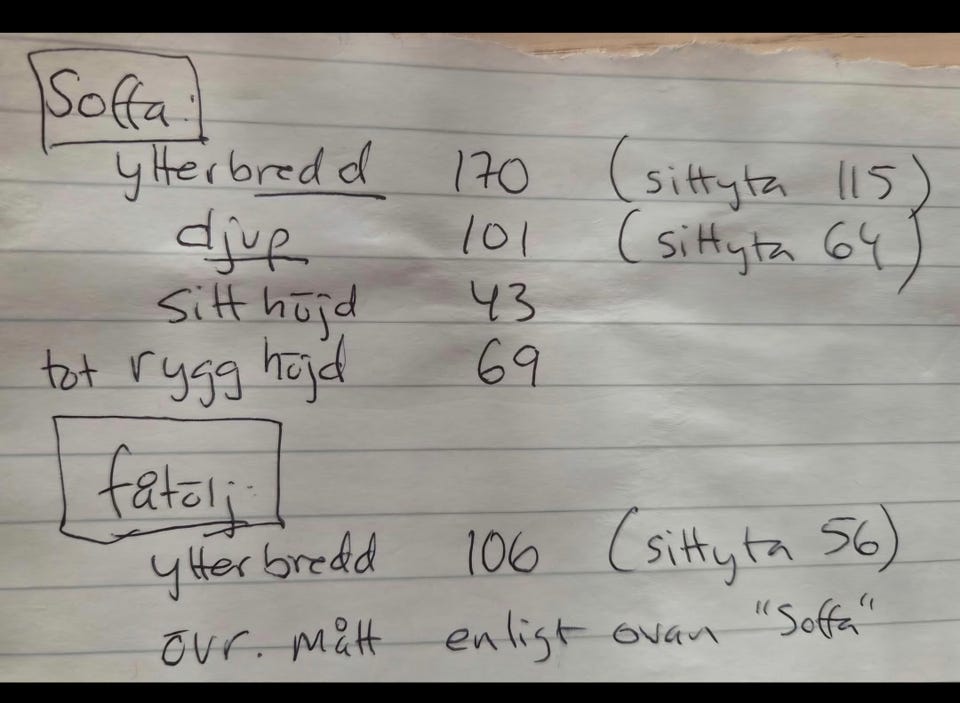 Soffa:
ytterbredd 170 (sittyta 115)
djup 101 (sittyta 64)
sitthöjd 43
tot rygghöjd 69
fåtölj:
ytterbredd 106 (sittyta 56)
övr. mått enligt ovan "Soffa"